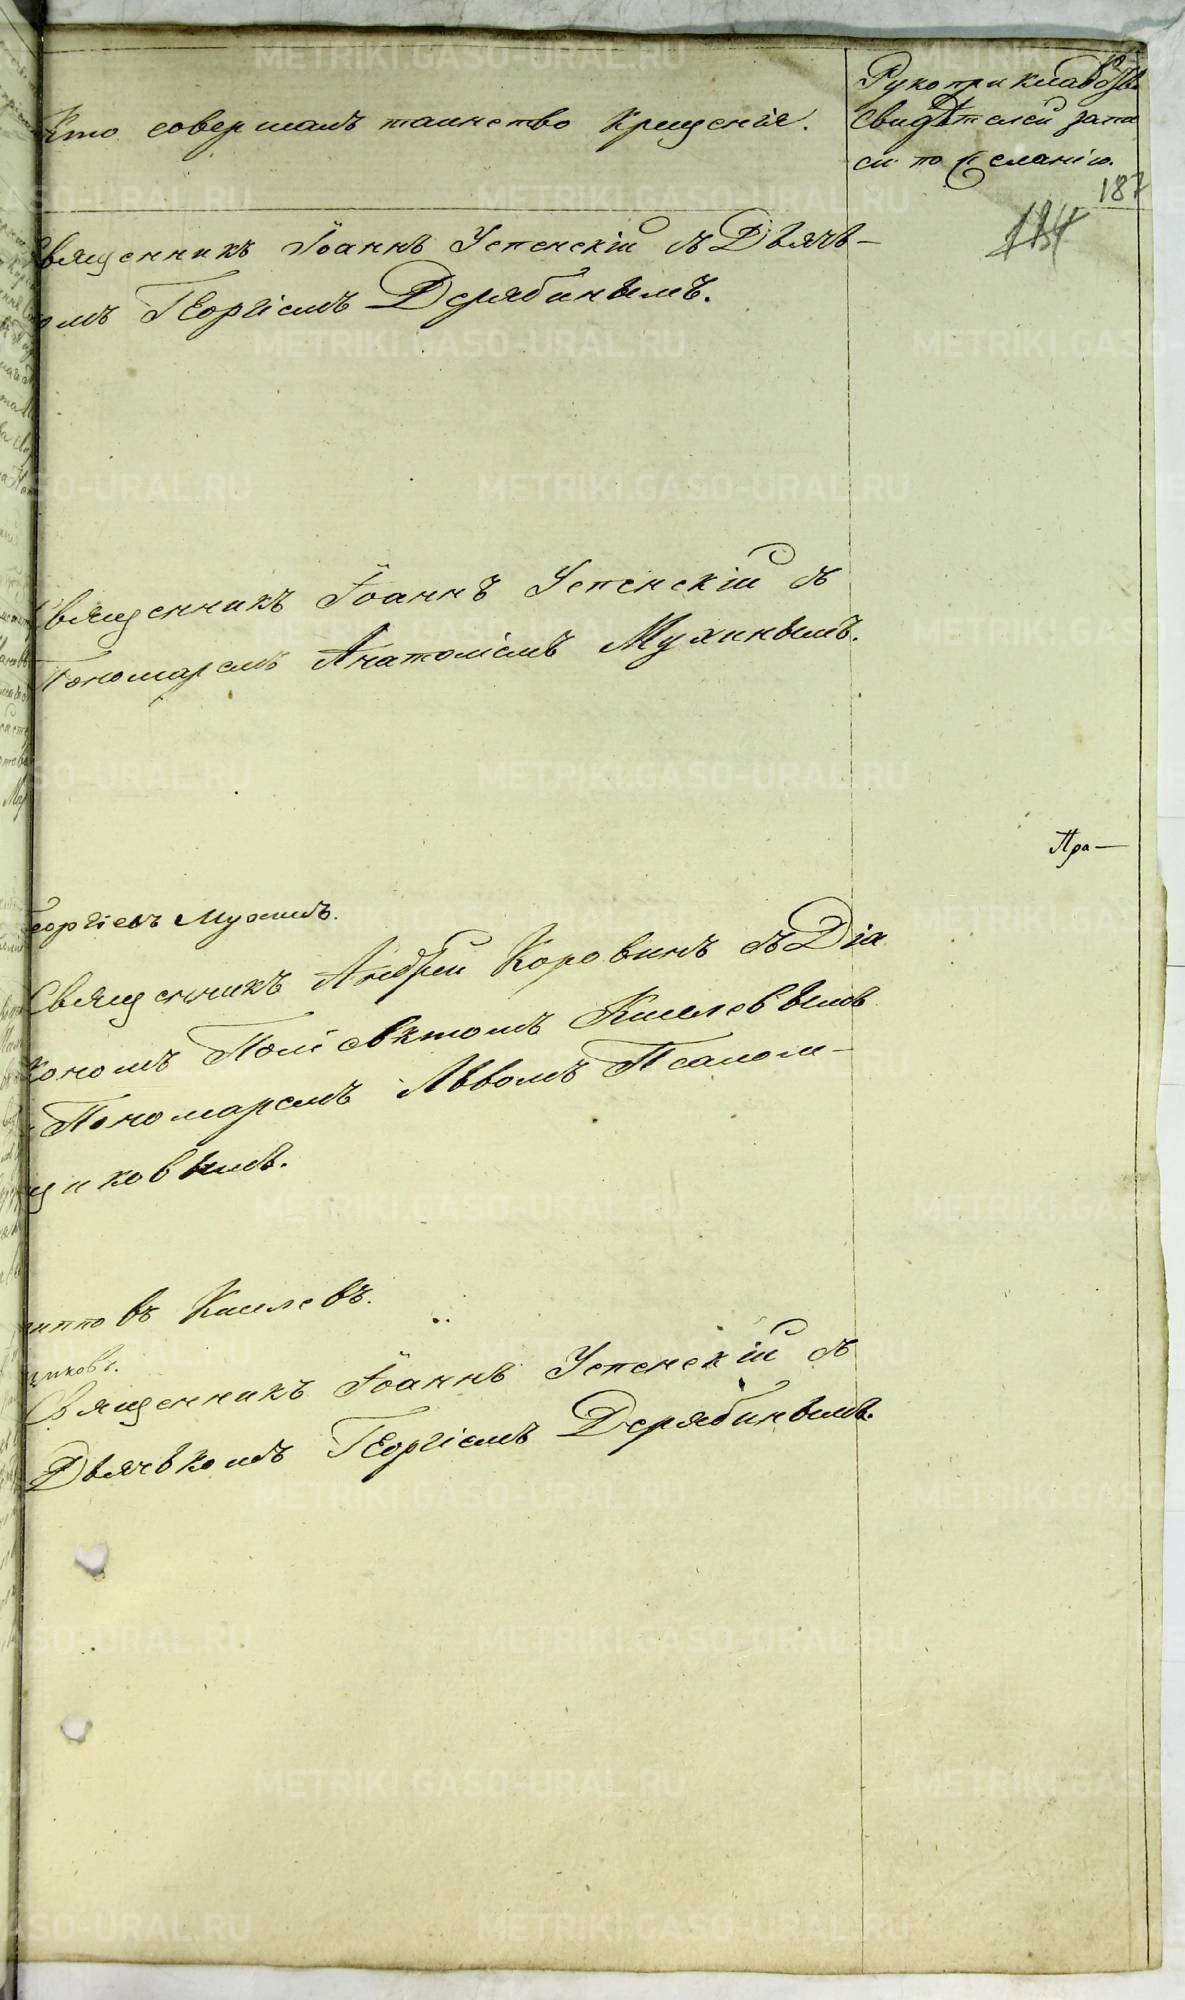 Кто совершалъ таинство крещенія.
Рукоприкладств.
свидѣтелей запи
си по желанію.
187
Священникъ Іоаннъ Успенскій съ Дьячь-
комъ Георгіемъ Дерябинымъ.
Священникъ Іоаннъ Успенскій съ
Пономаремъ Анатоліемъ Мухинымъ.
Пра-
Георгіевъ
Священникъ Андрей Коровинъ съ Діа
кономъ Поліевктомъ Киселевымъ
Пономаремъ Львомъ Псалом-
щиковымъ.
Киселевъ.
щиковъ.
Священникъ Іоаннъ Успенскій съ
Дьячькомъ Георгіемъ Дерябинымъ.
METRIKI.GASO-URAL.RU